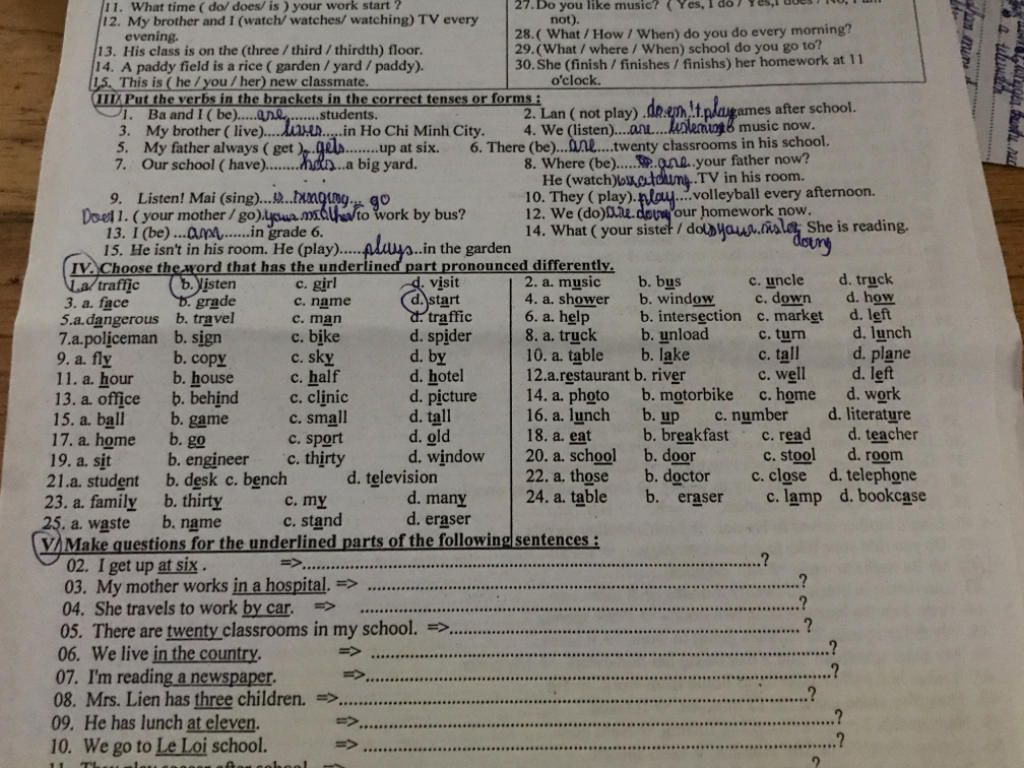 11. What time ( do/ does/ is ) your work start ?
12. My brother and I (watch/ watches/ watching) TV every
evening.
13. His class is on the (three / third / thirdth) floor.
14. A paddy field is a rice ( garden / yard / paddy).
15. This is ( he / you / her) new classmate.
27. Do you like music? ( Yes, I do / Yes,I does / No, I am
not).
28.( What / How / When) do you do every morning?
29.(What / where / When) school do you go to?
30. She (finish / finishes / finishs) her homework at 11
o'clock.
III/ Put the verbs in the brackets in the correct tenses or forms :
1. Ba and I ( be)....are........students.
2. Lan ( not play) .doesn't play games after school.
3. My brother ( live)......lives.....in Ho Chi Minh City.
4. We (listen)....are....listening to music now.
5. My father always ( get )...gets.........up at six.
6. There (be)....are....twenty classrooms in his school.
7. Our school ( have).........has...a big yard.
8. Where (be)......are..your father now?
He (watch) watching.TV in his room.
9. Listen! Mai (sing)...is..singing... go
10. They ( play)..play....volleyball every afternoon.
Does 11. ( your mother / go).your mother to work by bus?
12. We (do) are doing our homework now.
13. I (be) ...am.......in grade 6.
14. What ( your sister / do) is your sister She is reading.
doing
15. He isn't in his room. He (play).....plays..in the garden
IV. Choose the word that has the underlined part pronounced differently.
1.a/ traffic b. listen c. girl d. visit
2. a. music b. bus c. uncle d. truck
3. a. face b. grade c. name d. start
4. a. shower b. window c. down d. how
5.a.dangerous b. travel c. man d. traffic
6. a. help b. intersection c. market d. left
7.a.policeman b. sign c. bike d. spider
8. a. truck b. unload c. turn d. lunch
9. a. fly b. copy c. sky d. by
10. a. table b. lake c. tall d. plane
11. a. hour b. house c. half d. hotel
12.a.restaurant b. river c. well d. left
13. a. office b. behind c. clinic d. picture
14. a. photo b. motorbike c. home d. work
15. a. ball b. game c. small d. tall
16. a. lunch b. up c. number d. literature
17. a. home b. go c. sport d. old
18. a. eat b. breakfast c. read d. teacher
19. a. sit b. engineer c. thirty d. window
20. a. school b. door c. stool d. room
21.a. student b. desk c. bench d. television
22. a. those b. doctor c. close d. telephone
23. a. family b. thirty c. my d. many
24. a. table b. eraser c. lamp d. bookcase
25. a. waste b. name c. stand d. eraser
V/ Make questions for the underlined parts of the following sentences :
02. I get up at six . =>..........?
03. My mother works in a hospital. => ..........?
04. She travels to work by car. => ..........?
05. There are twenty classrooms in my school. =>..........?
06. We live in the country. => ..........?
07. I'm reading a newspaper. =>..........?
08. Mrs. Lien has three children. =>..........?
09. He has lunch at eleven. =>..........?
10. We go to Le Loi school. => ..........?
11. They play soccer after school. => ?